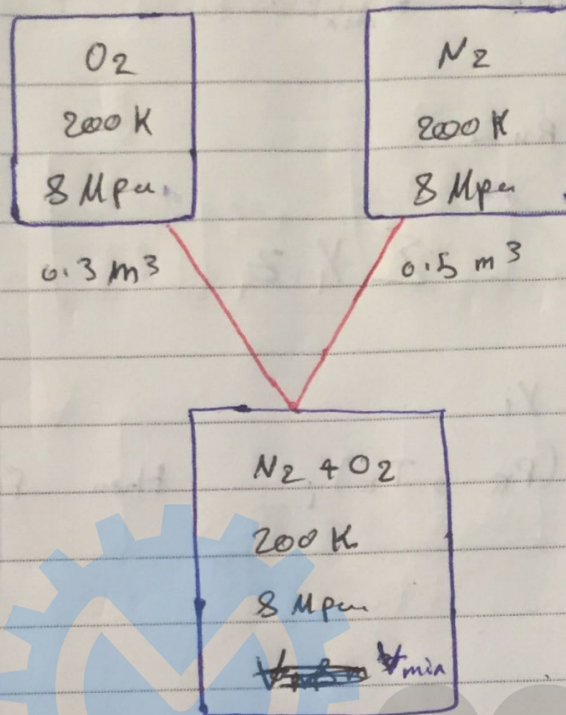 O2
200 K
8 Mpa
0.3 m3
N2
200 K
8 Mpa
0.5 m3
N2 + O2
200 K
8 Mpa
V min